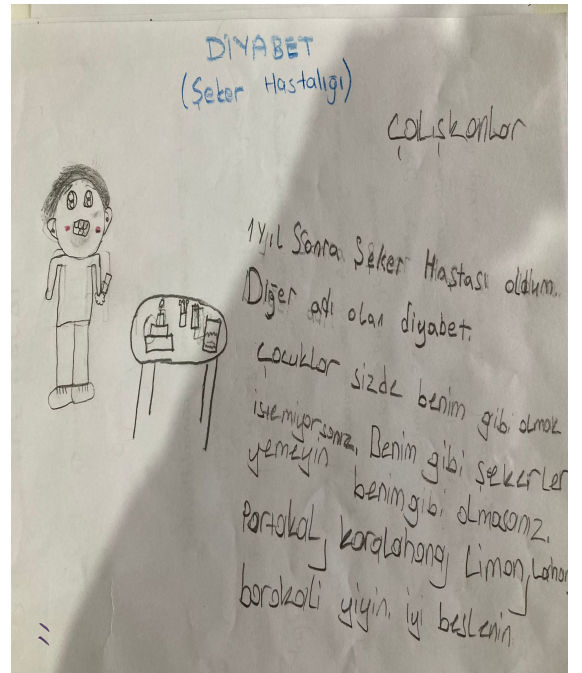 DİYABET
(Şeker Hastalığı)
Çalışkanlar
1 Yıl Sonra Şeker Hastası oldum.
Diğer adı olan diyabet.
Çocuklar sizde benim gibi olmak
istemiyorsanız. Benim gibi şekerler
yemeyin benim gibi olmasanız.
Portakal, karalahana, Limon, Lahan
borakali yiyin. iyi beslenin.